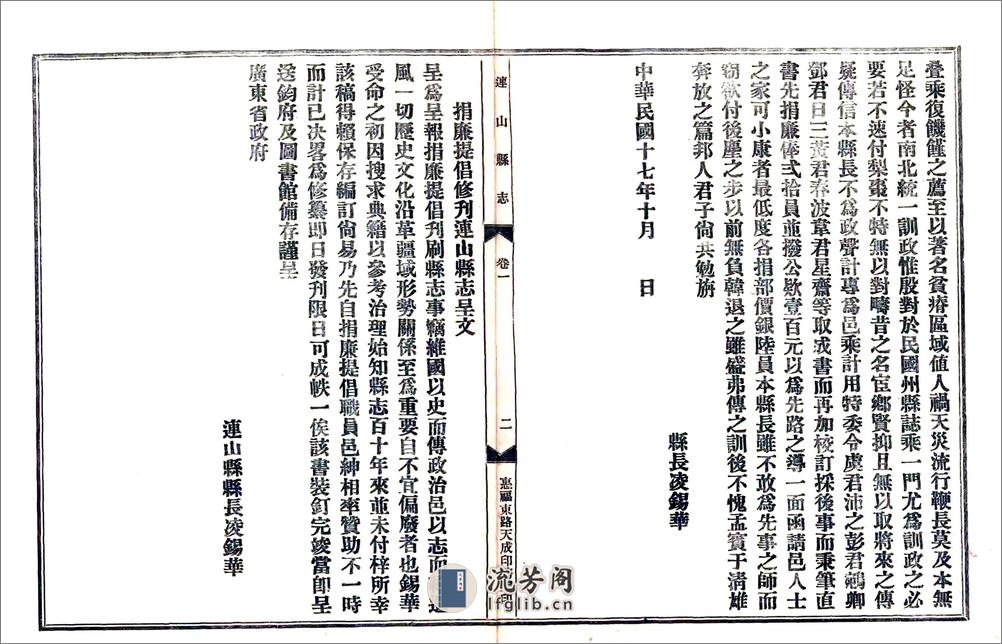 疊乘復饑饉之薦至以著名貧瘠區域值人禍天災流行鞭長莫及本無
足怪今者南北統一訓政惟殷對於民國州縣誌乘一門尤爲訓政之必
要若不速付梨棗不特無以對疇昔之名宦鄉賢抑且無以取將來之傳
疑傳信本縣長不爲政聲計專爲邑乘計用特委令虞君沛之彭君鵷卿
鄧君日三黃君春波韋君星齋等取成書而再加校訂採後事而秉筆直
書先捐廉俸弍拾員並撥公欵壹百元以爲先路之導一面函請邑人士
之家可小康者最低度各捐部價銀陸員本縣長雖不敢爲先事之師而
竊欲付後塵之步以前無負韓退之雖盛弗傳之訓後不愧孟賓于清雄
奔放之篇邦人君子尙共勉旃
縣長凌錫華
中華民國十七年十月 日
連山縣志 卷一 二 惠福東路天成印
捐廉提倡修刋連山縣志呈文
呈爲呈報捐廉提倡刋刷縣志事竊維國以史而傳政治邑以志而
風一切歷史文化沿革疆域形勢關係至爲重要自不宜偏廢者也錫華
受命之初因搜求典籍以參考治理始知縣志百十年來並未付梓所幸
該稿得賴保存編訂尙易乃先自捐廉提倡職員邑紳相率贊助不一時
而計已決畧爲修纂即日發刋限日可成帙一俟該書裝釘完竣當卽呈
送鈞府及圖書館備存謹呈
廣東省政府
連山縣縣長凌錫華
流芳阁
lfglib.cn